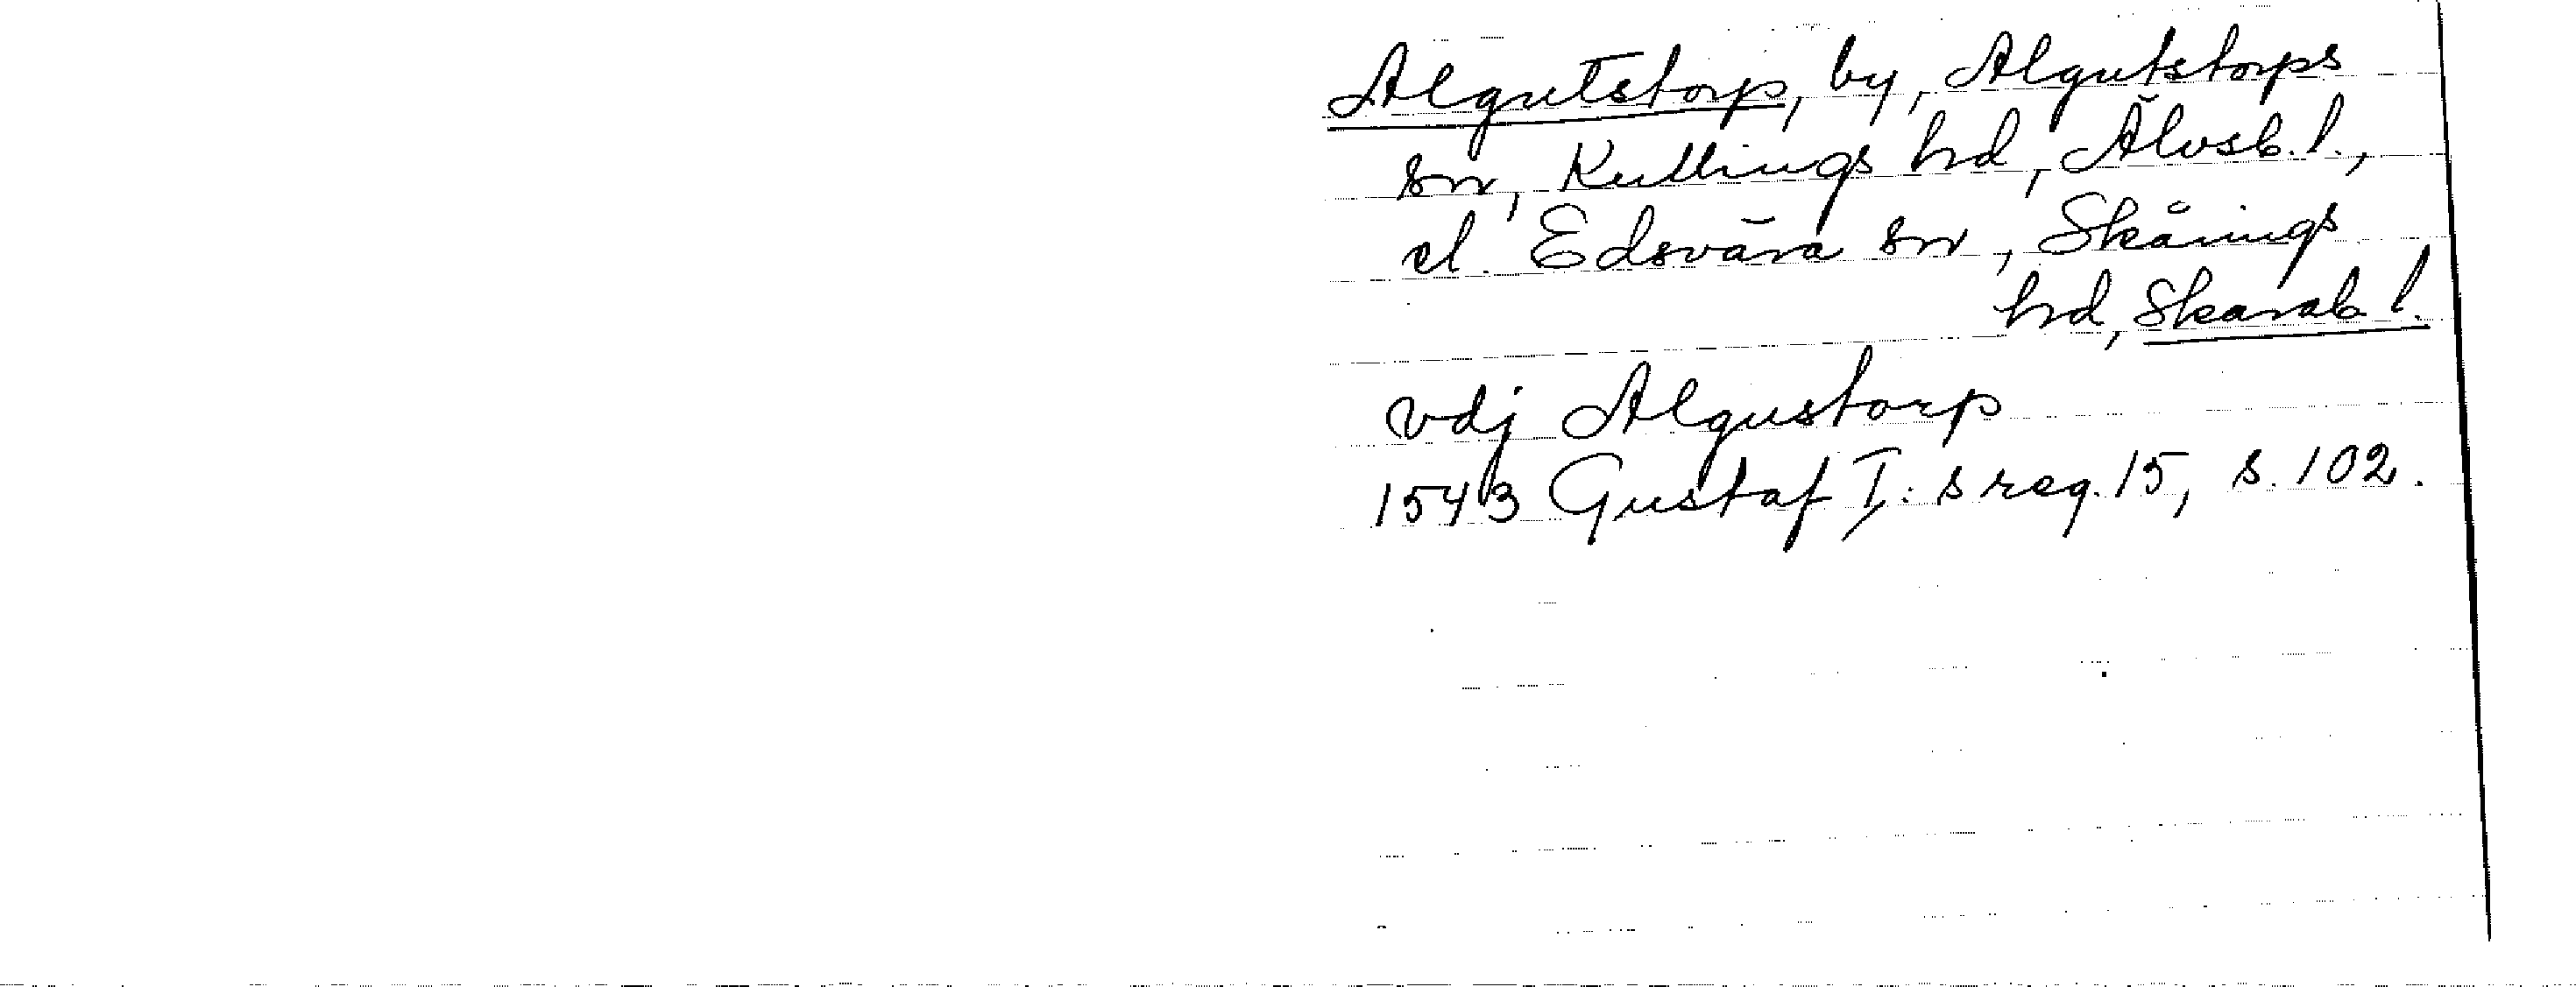 Algutstorp, by, Algutstorps
sn, Kullings hd, Älvsb. l.,
el. Edsvära sn, Skånings
hd, Skarab l.
vdj Algustorp
1543 Gustaf I:s reg. 15, s. 102.